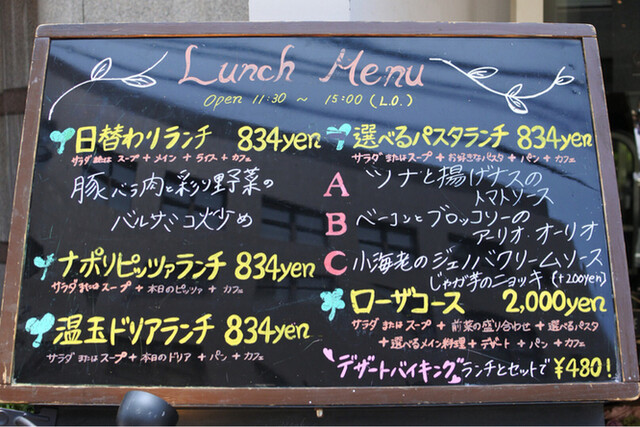 Lunch Menu
Open 11:30 ~ 15:00 (L.O.)
日替わりランチ 834yen
サラダ または スープ + メイン + ライス + カフェ
豚バラ肉と彩り野菜の
バルサミコ火炒め
ナポリピッツァランチ 834yen
サラダ または スープ + 本日のピッツァ + カフェ
温玉ドリアランチ 834yen
サラダ または スープ + 本日のドリア + パン + カフェ
選べるパスタランチ 834yen
サラダ または スープ + お好きなパスタ + パン + カフェ
A ツナと揚げナスの
トマトソース
B ベーコンとブロッコリーの
アーリオ・オーリオ
C 小海老のジェノバクリームソース
じゃが芋のニョッキ (+200yen)
ローザコース 2,000yen
サラダ または スープ + 前菜の盛り合わせ + 選べるパスタ
+ 選べるメイン料理 + デザート + パン + カフェ
デザートバイキング ランチとセットで ¥480!